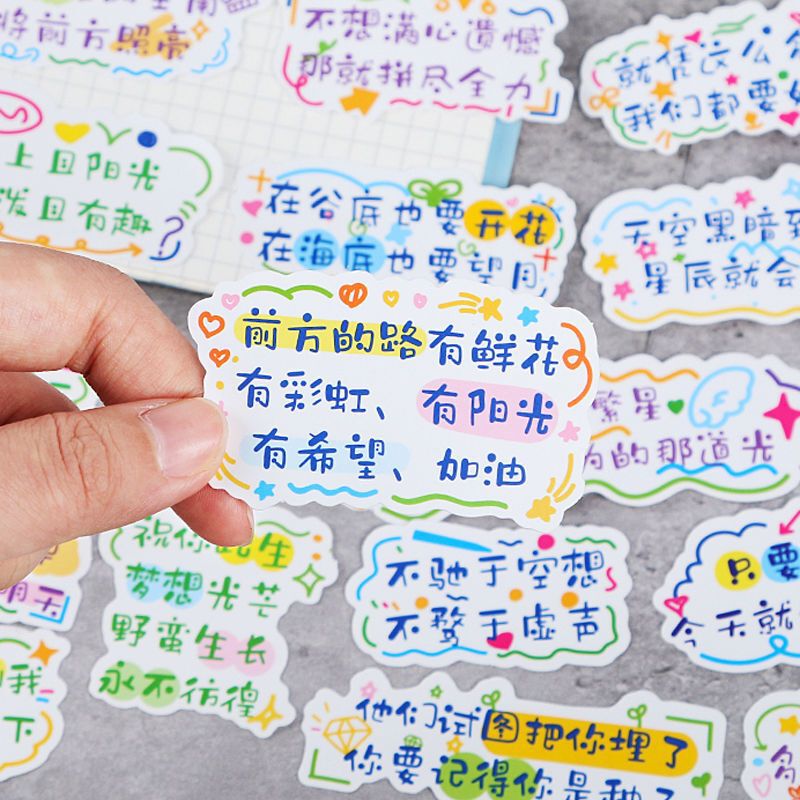 将前方照亮
不想满心遗憾
那就拼尽全力
就凭这么
我们都要
上且阳光
泼且有趣
在谷底也要开花
在海底也要望月
天空黑暗到
星辰就会
前方的路有鲜花
有彩虹、有阳光
有希望、加油
繁星
的那道光
祝你此生
梦想光芒
野蛮生长
永不彷徨
不驰于空想
不骛于虚声
只要
今天就
明天
我
下
他们试图把你埋了
你要记得你是种